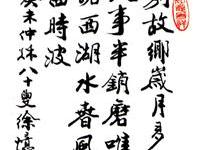 別故鄉歲月多
事半銷磨唯
西湖水春風
時波
癸未仲秌八十叟徐